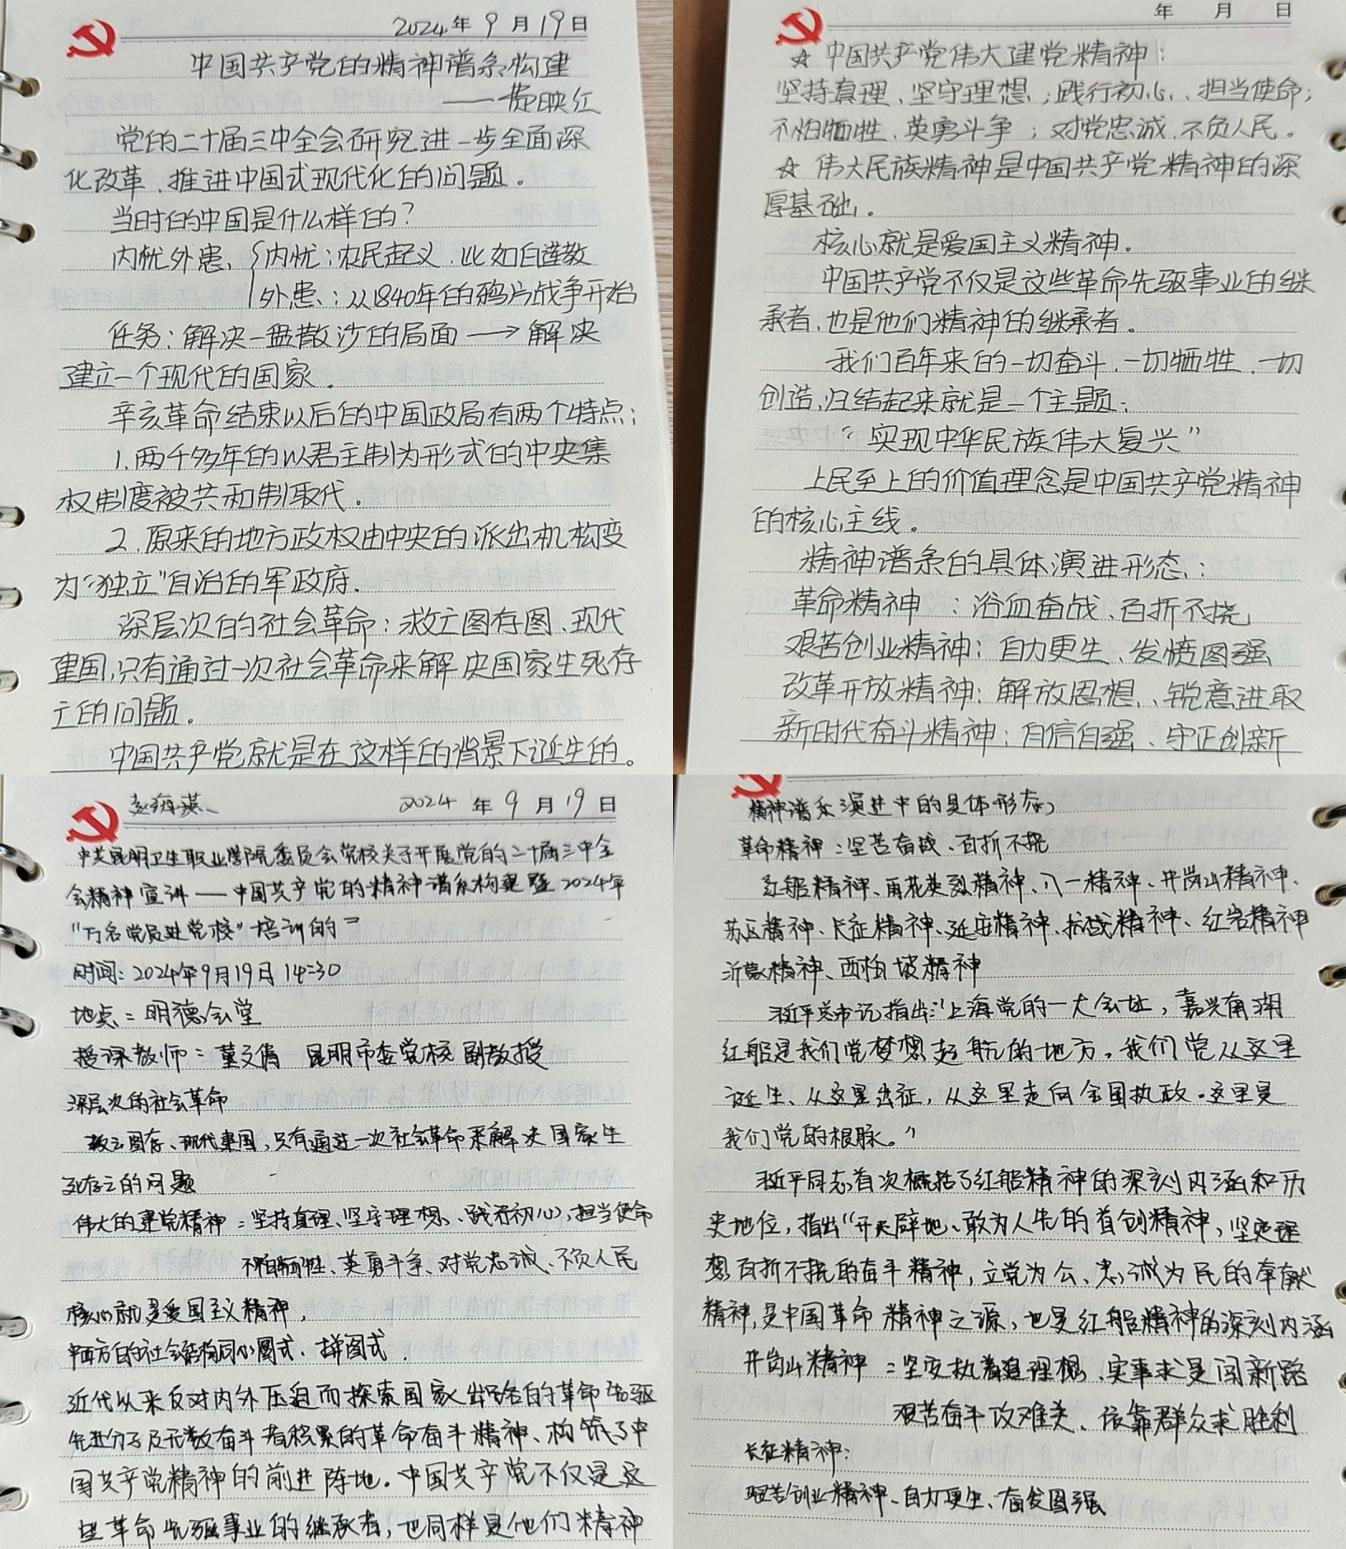 2024年9月19日
中国共产党的精神谱系构建
——黄映红
党的二十届三中全会研究进一步全面深
化改革、推进中国式现代化的问题。
当时的中国是什么样的？
内忧外患、内忧：农民起义、比如白莲教
外患：从1840年的鸦片战争开始
任务：解决一盘散沙的局面→解决
建立一个现代的国家。
辛亥革命结束以后的中国政局有两个特点：
1.两千多年的以君主制为形式的中央集
权制度被共和制取代。
2.原来的地方政权由中央的派出机构变
为“独立”自治的军政府.
深层次的社会革命：救亡图存图、现代
建国,只有通过一次社会革命来解决国家生死存
亡的问题。
中国共产党就是在这样的背景下诞生的。
年 月 日
☆中国共产党伟大建党精神：
坚持真理、坚守理想；践行初心、担当使命；
不怕牺牲、英勇斗争；对党忠诚、不负人民。
☆伟大民族精神是中国共产党精神的深
厚基础。
核心就是爱国主义精神.
中国共产党不仅是这些革命先驱事业的继
承者,也是他们精神的继承者。
我们百年来的一切奋斗、一切牺牲、一切
创造,归结起来就是一个主题：
“实现中华民族伟大复兴”
上民至上的价值理念是中国共产党精神
的核心主线。
精神谱系的具体演进形态：
革命精神：浴血奋战、百折不挠
艰苦创业精神：自力更生、发愤图强
改革开放精神：解放思想、锐意进取
新时代奋斗精神：自信自强、守正创新
2024年9月19日
中共昆明卫生职业学院委员会党校关于开展党的二十届三中全
会精神宣讲——中国共产党的精神谱系构建暨2024年
“万名党员进党校”培训的
时间：2024年9月19日14:30
地点：明德会堂
授课教师：董文倩 昆明市委党校 副教授
深层次的社会革命
救亡图存、现代建国,只有通过一次社会革命来解决国家生
死存亡的问题
伟大的建党精神：坚持真理、坚守理想、践行初心,担当使命
不怕牺牲、英勇斗争、对党忠诚、不负人民
核心就是爱国主义精神,
的社会结构同心圆式、拼图式.
近代以来反对内外压迫而探索国家出路的革命先驱
先进分子及无数奋斗者积累的革命奋斗精神、构筑了中
国共产党精神的前进阵地。中国共产党不仅是这
些革命先驱事业的继承者,也同样是他们精神
精神谱系演进中的具体形态
革命精神：坚苦奋战、百折不挠
红船精神、雨花英烈精神、八一精神、井岗山精神、
苏区精神、长征精神、延安精神、抗战精神、红岩精神
沂蒙精神、西柏坡精神
习近平总书记指出：“上海党的一大会址，嘉兴南湖
红船是我们党梦想起航的地方。我们党从这里
诞生、从这里出征，从这里走向全国执政。这里是
我们党的根脉。”
习近平同志首次概括了红船精神的深刻内涵和历
史地位，指出“开天辟地、敢为人先的首创精神，坚定理
想百折不挠的奋斗精神，立党为公、忠诚为民的奉献
精神,是中国革命精神之源，也是红船精神的深刻内涵
井岗山精神：坚定执着追理想、实事求是闯新路
艰苦奋斗攻难关、依靠群众求胜利
长征精神：
艰苦创业精神、自力更生、奋发图强